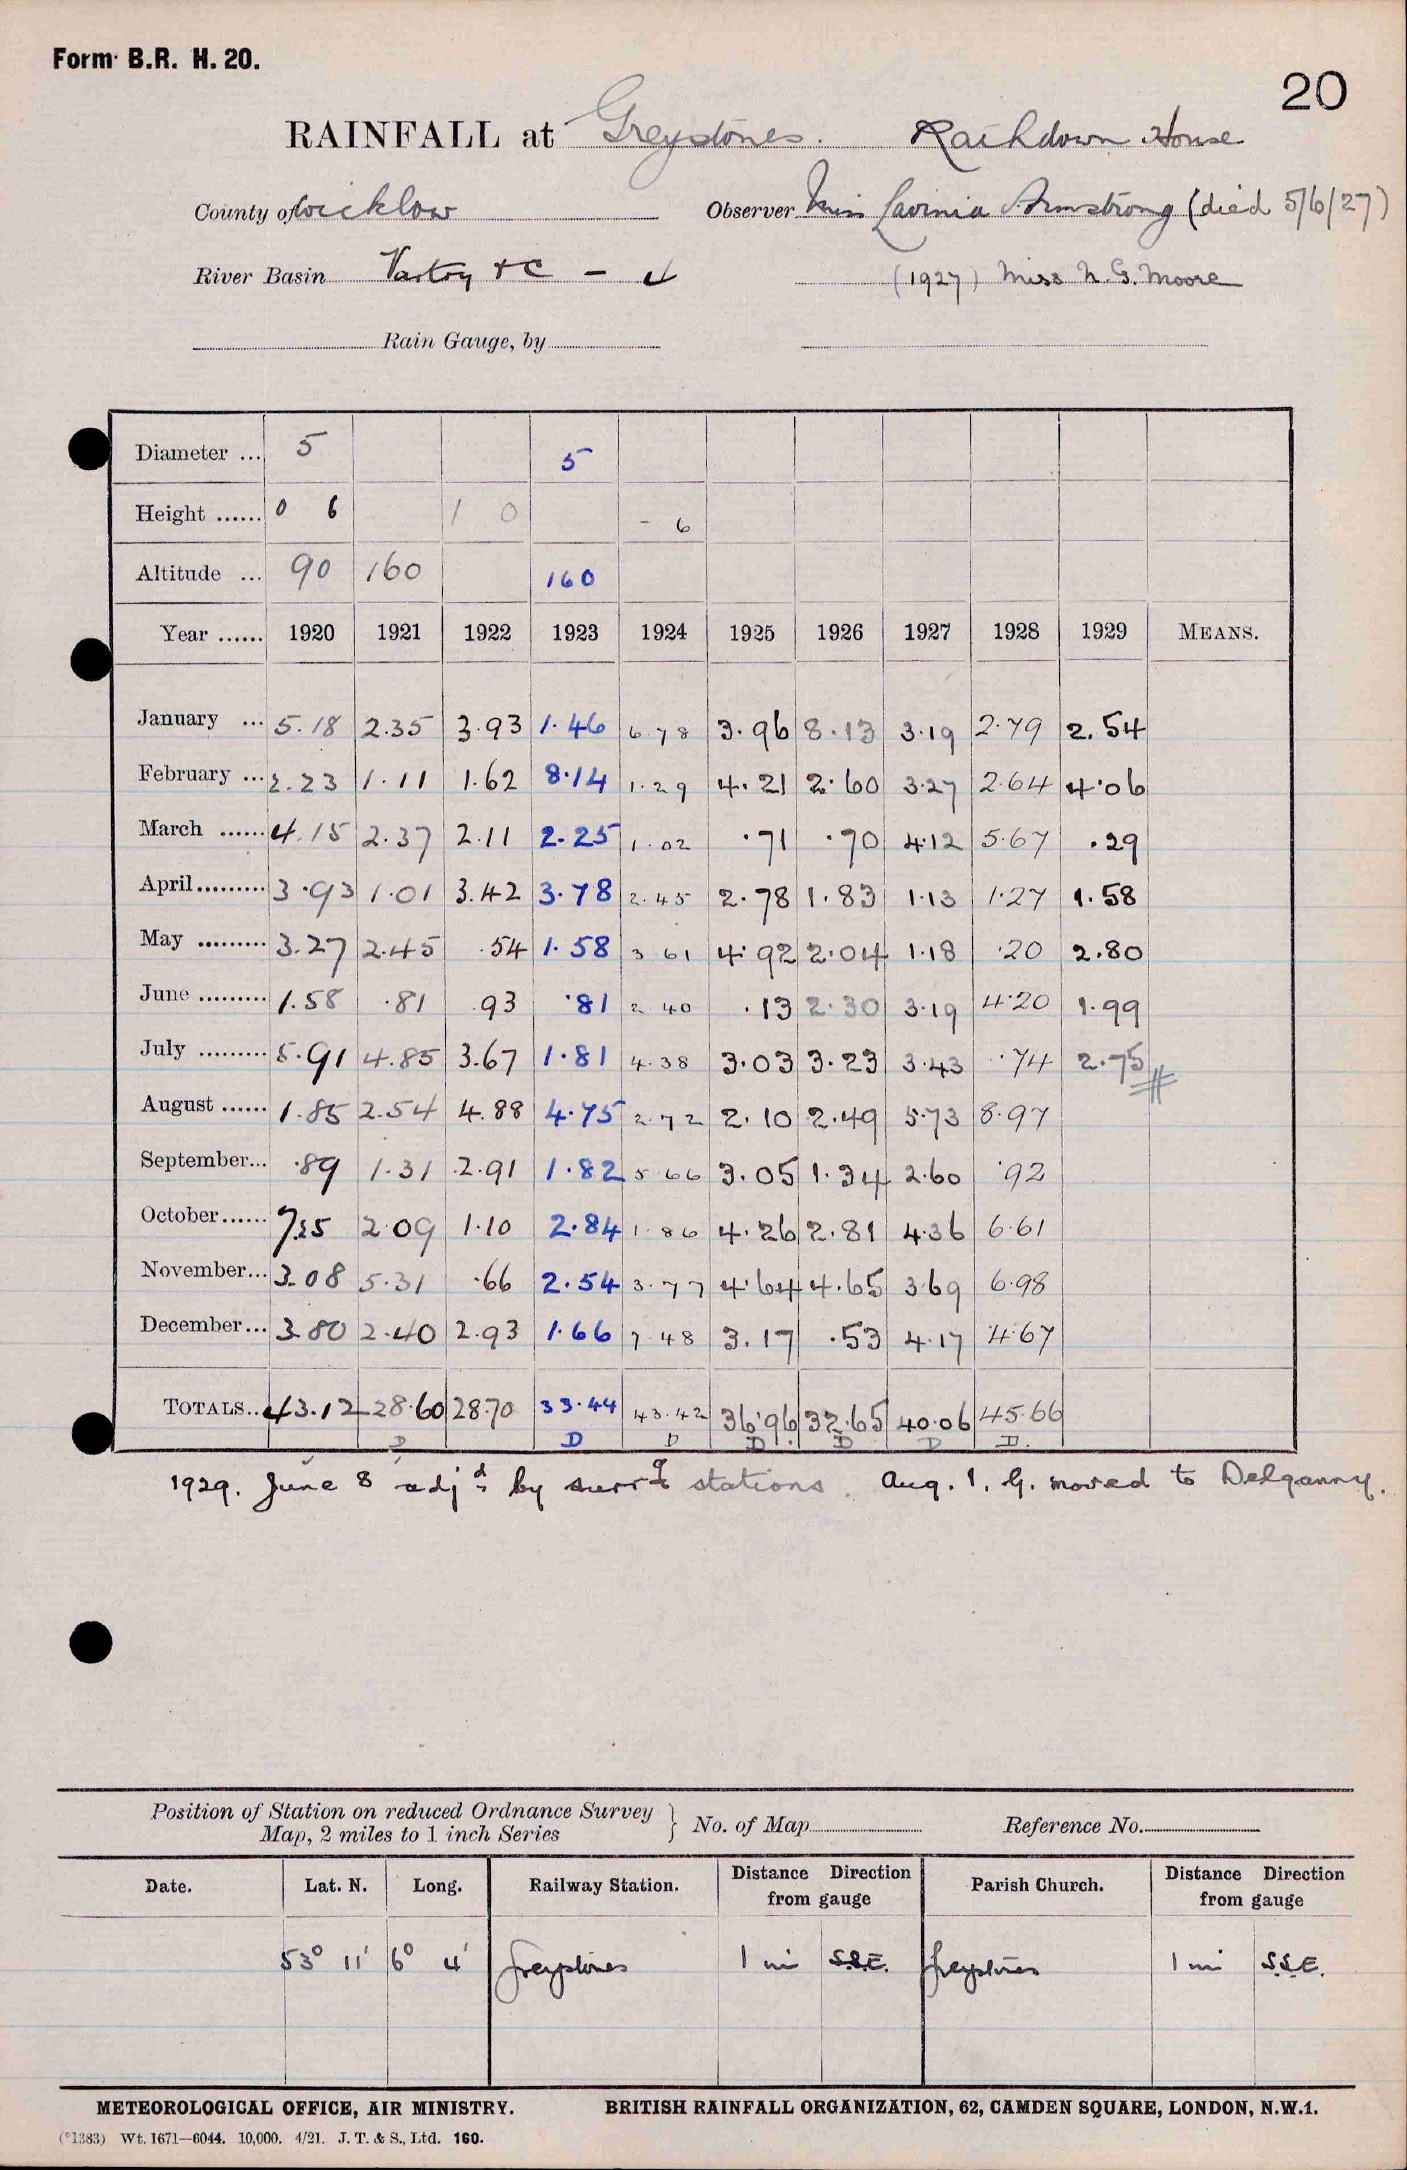 Form B.R. H. 20.
20
RAINFALL at Greystones. Rathdown House
County of Wicklow Observer Miss Lavinia Armstrong (died 5/6/27)
River Basin Vartry &c - 4 (1927) Miss N. G. Moore
Rain Gauge, by
Diameter ... 5 5
Height ...... 0 6 1 0 - 6
Altitude ... 90 160 160
Year ...... 1920 1921 1922 1923 1924 1925 1926 1927 1928 1929 MEANS.
January ... 5.18 2.35 3.93 1.46 6 78 3.96 3.13 3.19 2.79 2.54
February ... 2.23 1.11 1.62 8.14 1.29 4.21 2.60 3.27 2.64 4.06
March ...... 4.15 2.37 2.11 2.25 1.02 .71 .70 4.12 5.67 .29
April......... 3.93 1.01 3.42 3.78 2.45 2.78 1.83 1.13 1.27 1.58
May ......... 3.27 2.45 .54 1.58 3 61 4.92 2.04 1.18 .20 2.80
June ......... 1.58 .81 .93 .81 2 40 .13 2.30 3.19 4.20 1.99
July ......... 5.91 4.85 3.67 1.81 4.38 3.03 3.23 3.43 .74 2.75
August ...... 1.85 2.54 4.88 4.75 2.72 2.10 2.49 5.73 8.97
September... .89 1.31 2.91 1.82 5 66 3.05 1.34 2.60 .92
October...... 7.25 2.09 1.10 2.84 1.86 4.26 2.81 4.36 6.61
November... 3.08 5.31 .66 2.54 3.77 4.64 4.65 3.69 6.98
December... 3.80 2.40 2.93 1.66 7.48 3.17 .53 4.17 4.67
TOTALS.. 43.12 28.60 28.70 33.44 43.42 36.96 32.65 40.06 45.66
D D D D D D D.
1929. June 8 adjd by surrg stations. Aug. 1. G. moved to Delganny.
Position of Station on reduced Ordnance Survey Map, 2 miles to 1 inch Series } No. of Map Reference No.
Date. Lat. N. Long. Railway Station. Distance Direction from gauge Parish Church. Distance Direction from gauge
53° 11' 6° 4' Greystones 1 mi S.S.E. Greystones 1 mi S.S.E.
METEOROLOGICAL OFFICE, AIR MINISTRY. BRITISH RAINFALL ORGANIZATION, 62, CAMDEN SQUARE, LONDON, N.W.1.
(*1383) Wt. 1671—6044. 10,000. 4/21. J. T. & S., Ltd. 160.